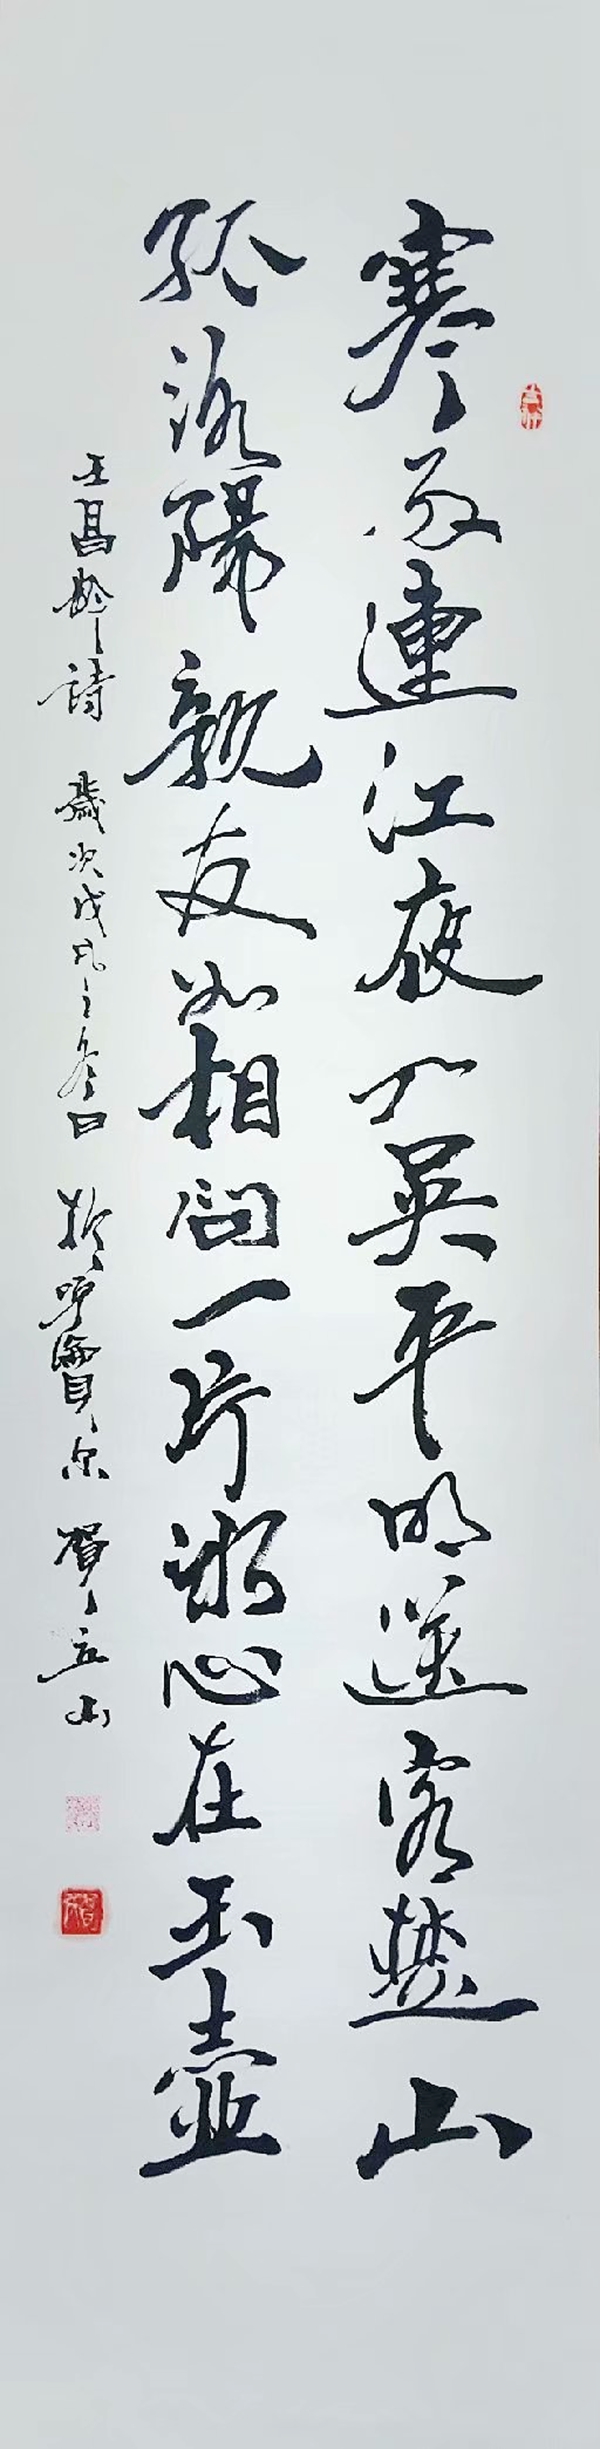 寒雨連江夜入吳平明送客楚山
孤洛陽親友如相問一片冰心在玉壺
王昌齡詩 歲次戊戌之冬日 於 賀立山